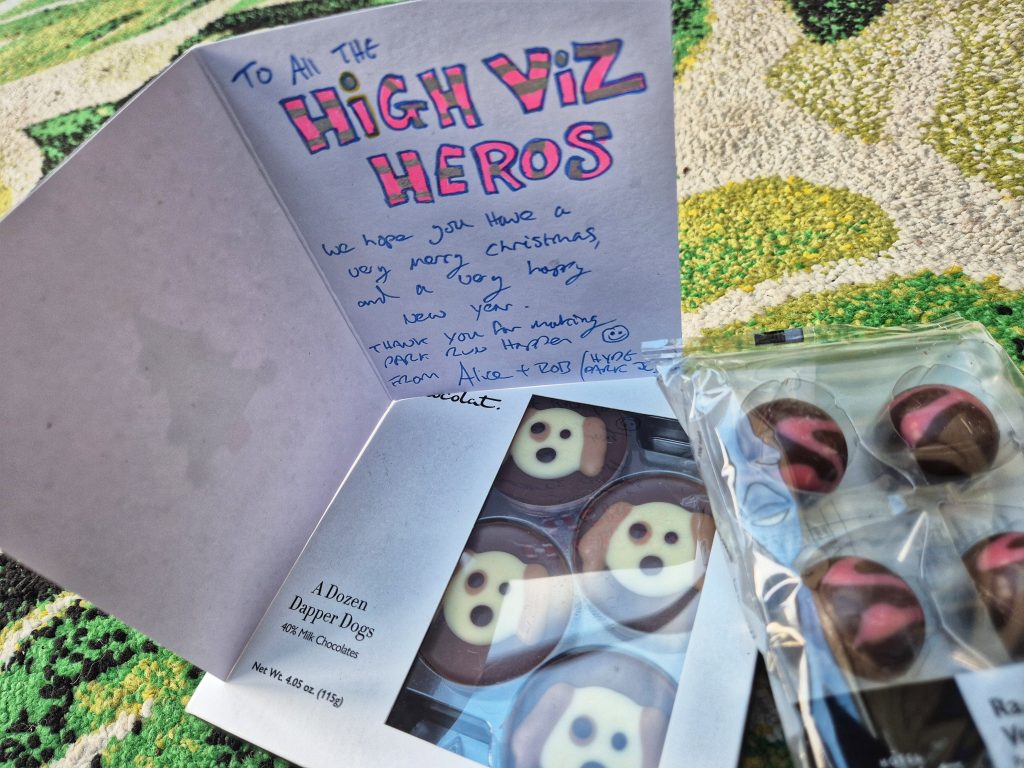 To All THE
HiGH ViZ
HEROS
We hope you Have a
very merry christmas,
and a very happy
New year.
THANK you for making
PARK RUN Happen
FROM Alice + ROB (HYDE
PARK
ocolat.
A Dozen
Dapper Dogs
40% Milk Chocolates
Net Wt. 4.05 oz. (115g)